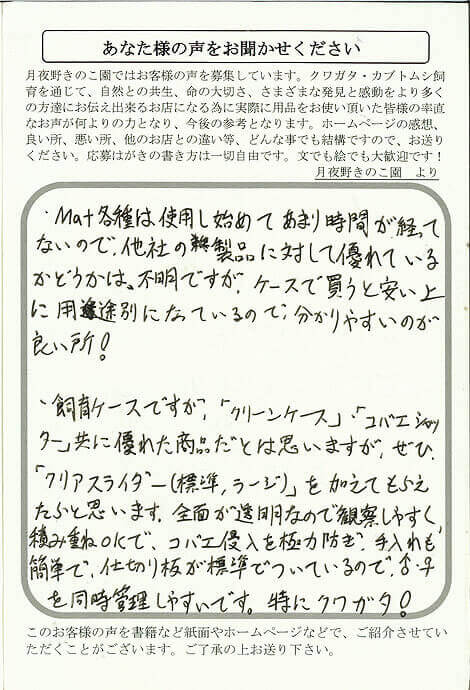 あなた様の声をお聞かせください
月夜野きのこ園ではお客様の声を募集しています。クワガタ・カブトムシ飼
育を通じて、自然との共生、命の大切さ、さまざまな発見と感動をより多く
の方達にお伝え出来るお店になる為に実際に用品をお使い頂いた皆様の率直
なお声が何よりの力となり、今後の参考となります。ホームページの感想、
良い所、悪い所、他のお店との違い等、どんな事でも結構ですので、お送り
ください。応募はがきの書き方は一切自由です。文でも絵でも大歓迎です！
月夜野きのこ園　より
・Mat各種は使用し始めてあまり時間が経って
ないので、他社の製品に対して優れている
かどうかは、不明ですが、ケースで買うと安い上
に用途別になっているので、分かりやすいのが
良い所！
・飼育ケースですが、「クリーンケース」・「コバエシャッ
ター」共に優れた商品だとは思いますが、ぜひ、
「クリアスライダー（標準，ラージ）」を加えてもらえ
たらと思います。全面が透明なので観察しやすく、
積み重ねOKで、コバエ侵入を極力防ぎ、手入れも
簡単で、仕切り板が標準でついているので、♂・♀
を同時管理しやすいです。特にクワガタ！
このお客様の声を書籍など紙面やホームページなどで、ご紹介させてい
ただくことがございます。ご了承の上お送り下さい。